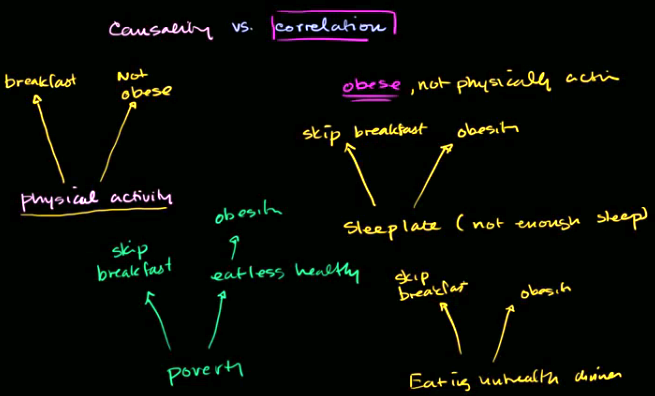 Causality vs. correlation
breakfast
Not
obese
physical activity
obese, not physically activ
skip breakfast
obesity
Sleep late (not enough sleep)
obesity
skip
breakfast
eat less healthy
poverty
skip
breakfast
obesity
Eating unhealth dinner